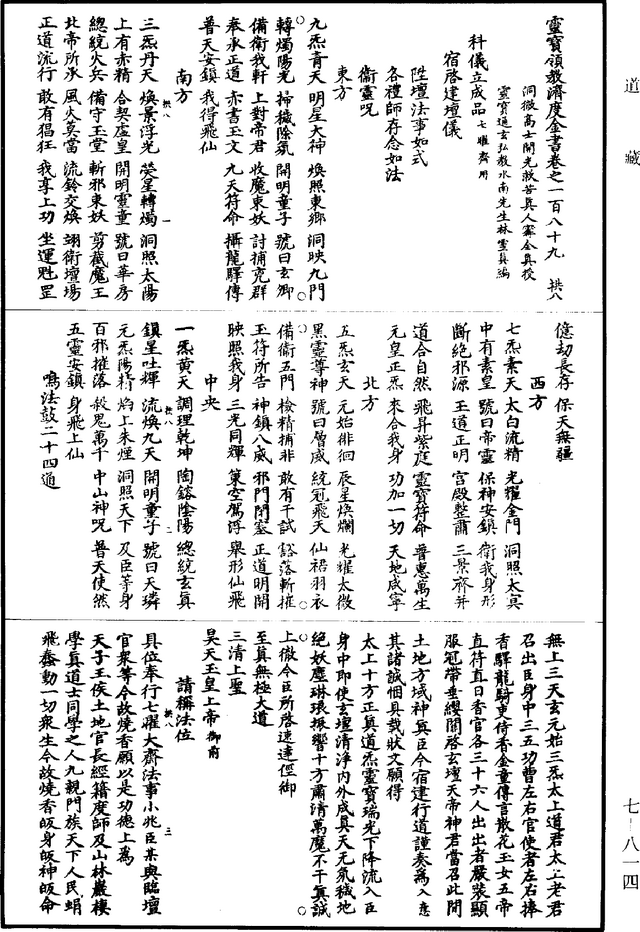 道藏
靈寶領教濟度金書卷之一百八十九 拱八
洞微高士開光救苦眞人甯全眞授
靈寶通玄弘教水南先生林靈眞編
科儀立成品七曜齋用
宿啓建壇儀
陞壇法事如式
各禮師存念如法
衞靈呪
東方
九炁青天 明星大神 煥照東鄉 洞映九門
轉燭陽光 掃穢除氛 開明童子 號曰玄卿
備衞我軒 上對帝君 收魔束妖 討捕兇群
奉承正道 赤書玉文 九天符命 攝龍驛傳
普天安鎮 我得飛仙
南方
三炁丹天 煥景浮光 熒星轉燭 洞照太陽
上有赤精 合契虛皇 開明靈童 號曰華房
總統火兵 備守玉堂 斬邪束妖 剪截魔王
北帝所承 風火莫當 流鈴交煥 翊衞壇場
正道流行 敢有猖狂 我享上功 坐運魁罡
億劫長存 保天無疆
西方
七炁素天 太白流精 光耀金門 洞照太冥
中有素皇 號曰帝靈 保神安鎮 衞我身形
斷絕邪源 王道正明 宮殿整肅 三景齊并
道合自然 飛昇紫庭 靈寶符命 普惠萬生
元皇正炁 來合我身 功加一切 天地咸寧
北方
五炁玄天 元始徘徊 辰星煥爛 光耀太微
黑靈尊神 號曰層威 統冠飛天 仙裙羽衣
備衞五門 檢精捕非 敢有干試 豁落斬摧
玉符所告 神鎮八威 邪門閉塞 正道明開
映照我身 三光同輝 策空駕浮 舉形仙飛
中央
一炁黃天 調理乾坤 陶鎔陰陽 總統玄眞
鎮星吐輝 流煥九天 開明童子 號曰天璘
元炁陽精 焰上朱煙 洞照天下 及臣等身
百邪摧落 殺鬼萬千 中山神呪 普天使然
五靈安鎮 身飛上仙
鳴法鼓二十四通
無上三天玄元始三炁太上道君太上老君
召出臣身中三五功曹左右官使者左右捧
香驛龍騎吏侍香金童傳言散花玉女五帝
直符直日香官各三十六人出出者嚴裝顯
服冠帶垂纓關啓玄壇天帝神君當召此間
土地方域神眞臣今宿建行道謹奏爲入意
其諸誠悃具載狀文願得
太上十方正眞道炁靈寶瑞光下降流入臣
身中即使玄壇清淨內外成眞天元氛穢地
絕妖塵琳琅振響十方肅清萬魔不干眞誠
上徹令臣所啓速達徑御
至眞無極大道
三清上聖
昊天玉皇上帝御前
請稱法位
具位奉行七曜大齋法事小兆臣某與臨壇
官衆等今故燒香願以是功德上爲
天子王侯土地官長經籍度師及山林巖棲
學眞道士同學之人九親門族天下人民蜎
飛蠢動一切衆生今故燒香皈身皈神皈命
七-八一四